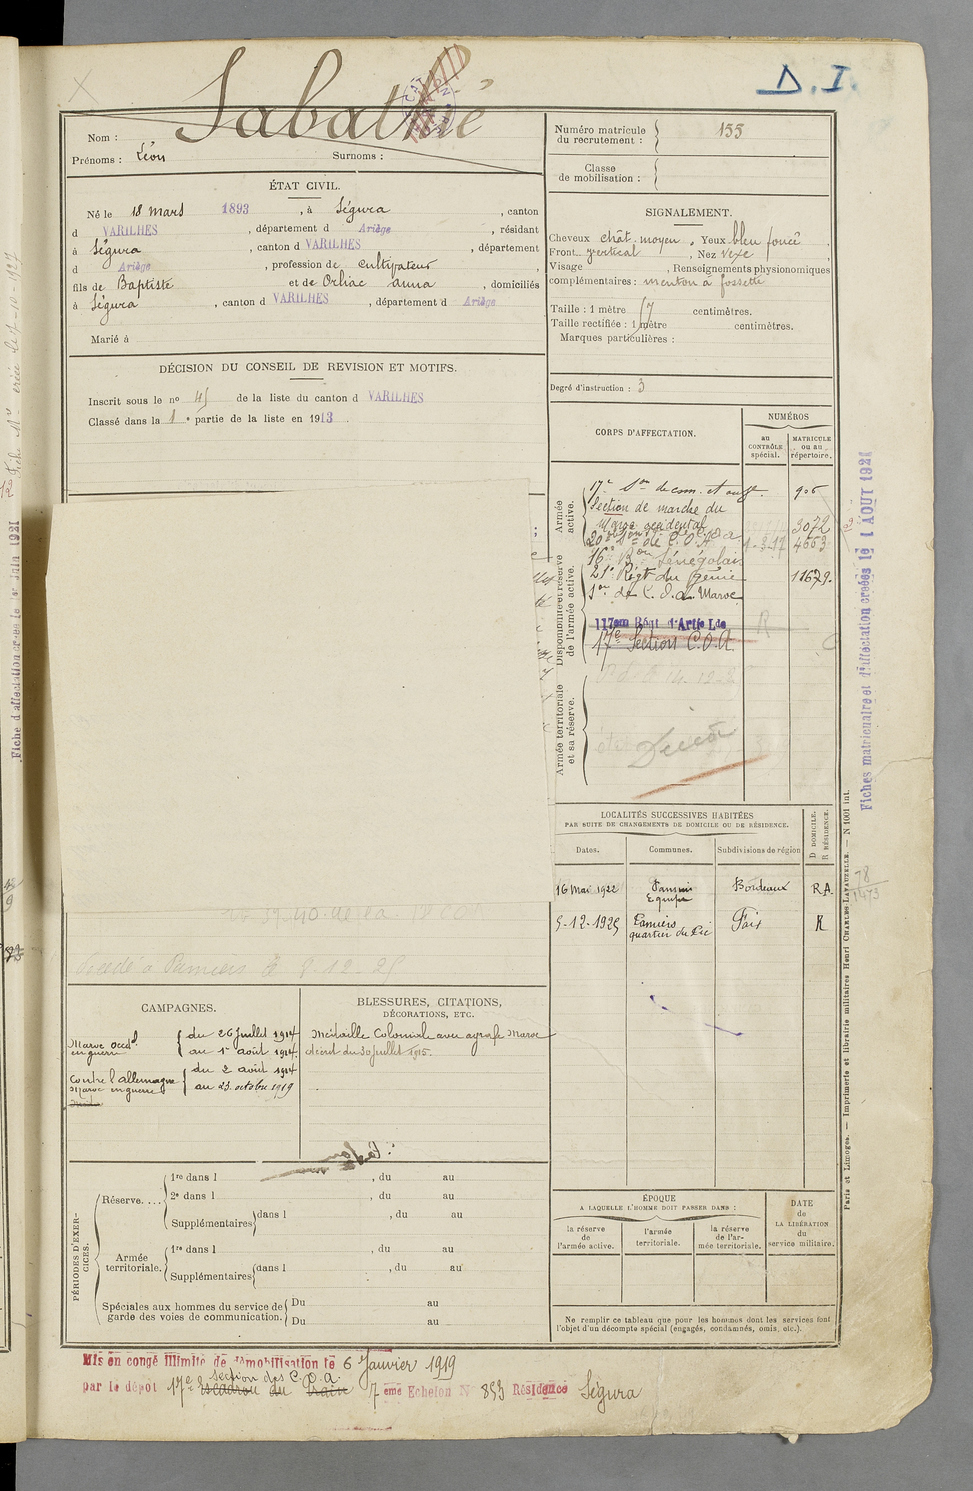 D. I.
Sabathé
Nom :
Prénoms : Léon Surnoms :
Numéro matricule du recrutement : 155
Classe de mobilisation :
ÉTAT CIVIL.
Né le 18 mars 1893, à Ségura, canton
d VARILHES, département d Ariège, résidant
à Ségura, canton d VARILHES, département
d Ariège, profession de cultivateur,
fils de Baptiste et de Orliac anna, domiciliés
à Ségura, canton d VARILHES, département d Ariège
Marié à
SIGNALEMENT.
Cheveux chât. moyen, Yeux bleu foncé
Front vertical, Nez vexe
Visage , Renseignements physionomiques
complémentaires : menton à fossette
Taille : 1 mètre 57 centimètres.
Taille rectifiée : 1 mètre centimètres.
Marques particulières :
Degré d'instruction : 3
DÉCISION DU CONSEIL DE REVISION ET MOTIFS.
Inscrit sous le no 45 de la liste du canton d VARILHES
Classé dans la 1e partie de la liste en 1913.
CORPS D'AFFECTATION.
NUMÉROS
au CONTRÔLE spécial.
MATRICULE ou au répertoire.
Armée active.
17e Son de com. et ouv. 906
Section de marche du
Maroc occidental 3072
20e Son de C.O.A. 4663
16e Bon Sénégalais
Disponibilité et réserve de l'armée active.
21e Régt du génie 11679.
Son de C.O.A. Maroc
117em Régt d'Artie Lde R
17e Section C.O.A.
Armée territoriale et sa réserve.
Décédé
LOCALITÉS SUCCESSIVES HABITÉES
PAR SUITE DE CHANGEMENTS DE DOMICILE OU DE RÉSIDENCE.
Dates.
Communes.
Subdivisions de région
D DOMICILE.
R RÉSIDENCE.
16 Mai 1922 Pamiers Bordeaux RA.
5-12-1925 Pamiers quartier du Pic Foix R
Décédé à Pamiers le 8-12-25
CAMPAGNES.
Maroc occdl en guerre
du 26 Juillet 1914
au 1er août 1914.
Contre l'allemagne
Maroc en guerre
du 2 août 1914
au 23 octobre 1919
BLESSURES, CITATIONS,
DÉCORATIONS, ETC.
Médaille Coloniale avec agrafe Maroc
décret du 30 juillet 1915.
PÉRIODES D'EXERCICES.
Réserve....
1re dans l , du au
2e dans l , du au
Supplémentaires dans l , du au
Armée territoriale.
1re dans l , du au
Supplémentaires dans l , du au
Spéciales aux hommes du service de garde des voies de communication.
Du au
Du au
ÉPOQUE
A LAQUELLE L'HOMME DOIT PASSER DANS :
la réserve de l'armée active.
l'armée territoriale.
la réserve de l'armée territoriale.
DATE
de
LA LIBÉRATION
du
service militaire.
Ne remplir ce tableau que pour les hommes dont les services font
l'objet d'un décompte spécial (engagés, condamnés, omis, etc.).
Mis en congé illimité de démobilisation le 6 Janvier 1919
par le dépôt 17e Section des C.O.A.
escadron du Train
7 eme Echelon N° 853 Résidence Ségura
Fiche d'affectation créée le 1er juin 1921
Fiches matriculaire et d'affectation créées le 1 AOUT 1921
78
1473
Paris et Limoges. — Imprimerie et librairie militaires Henri CHARLES-LAVAUZELLE. — N 1001 int.